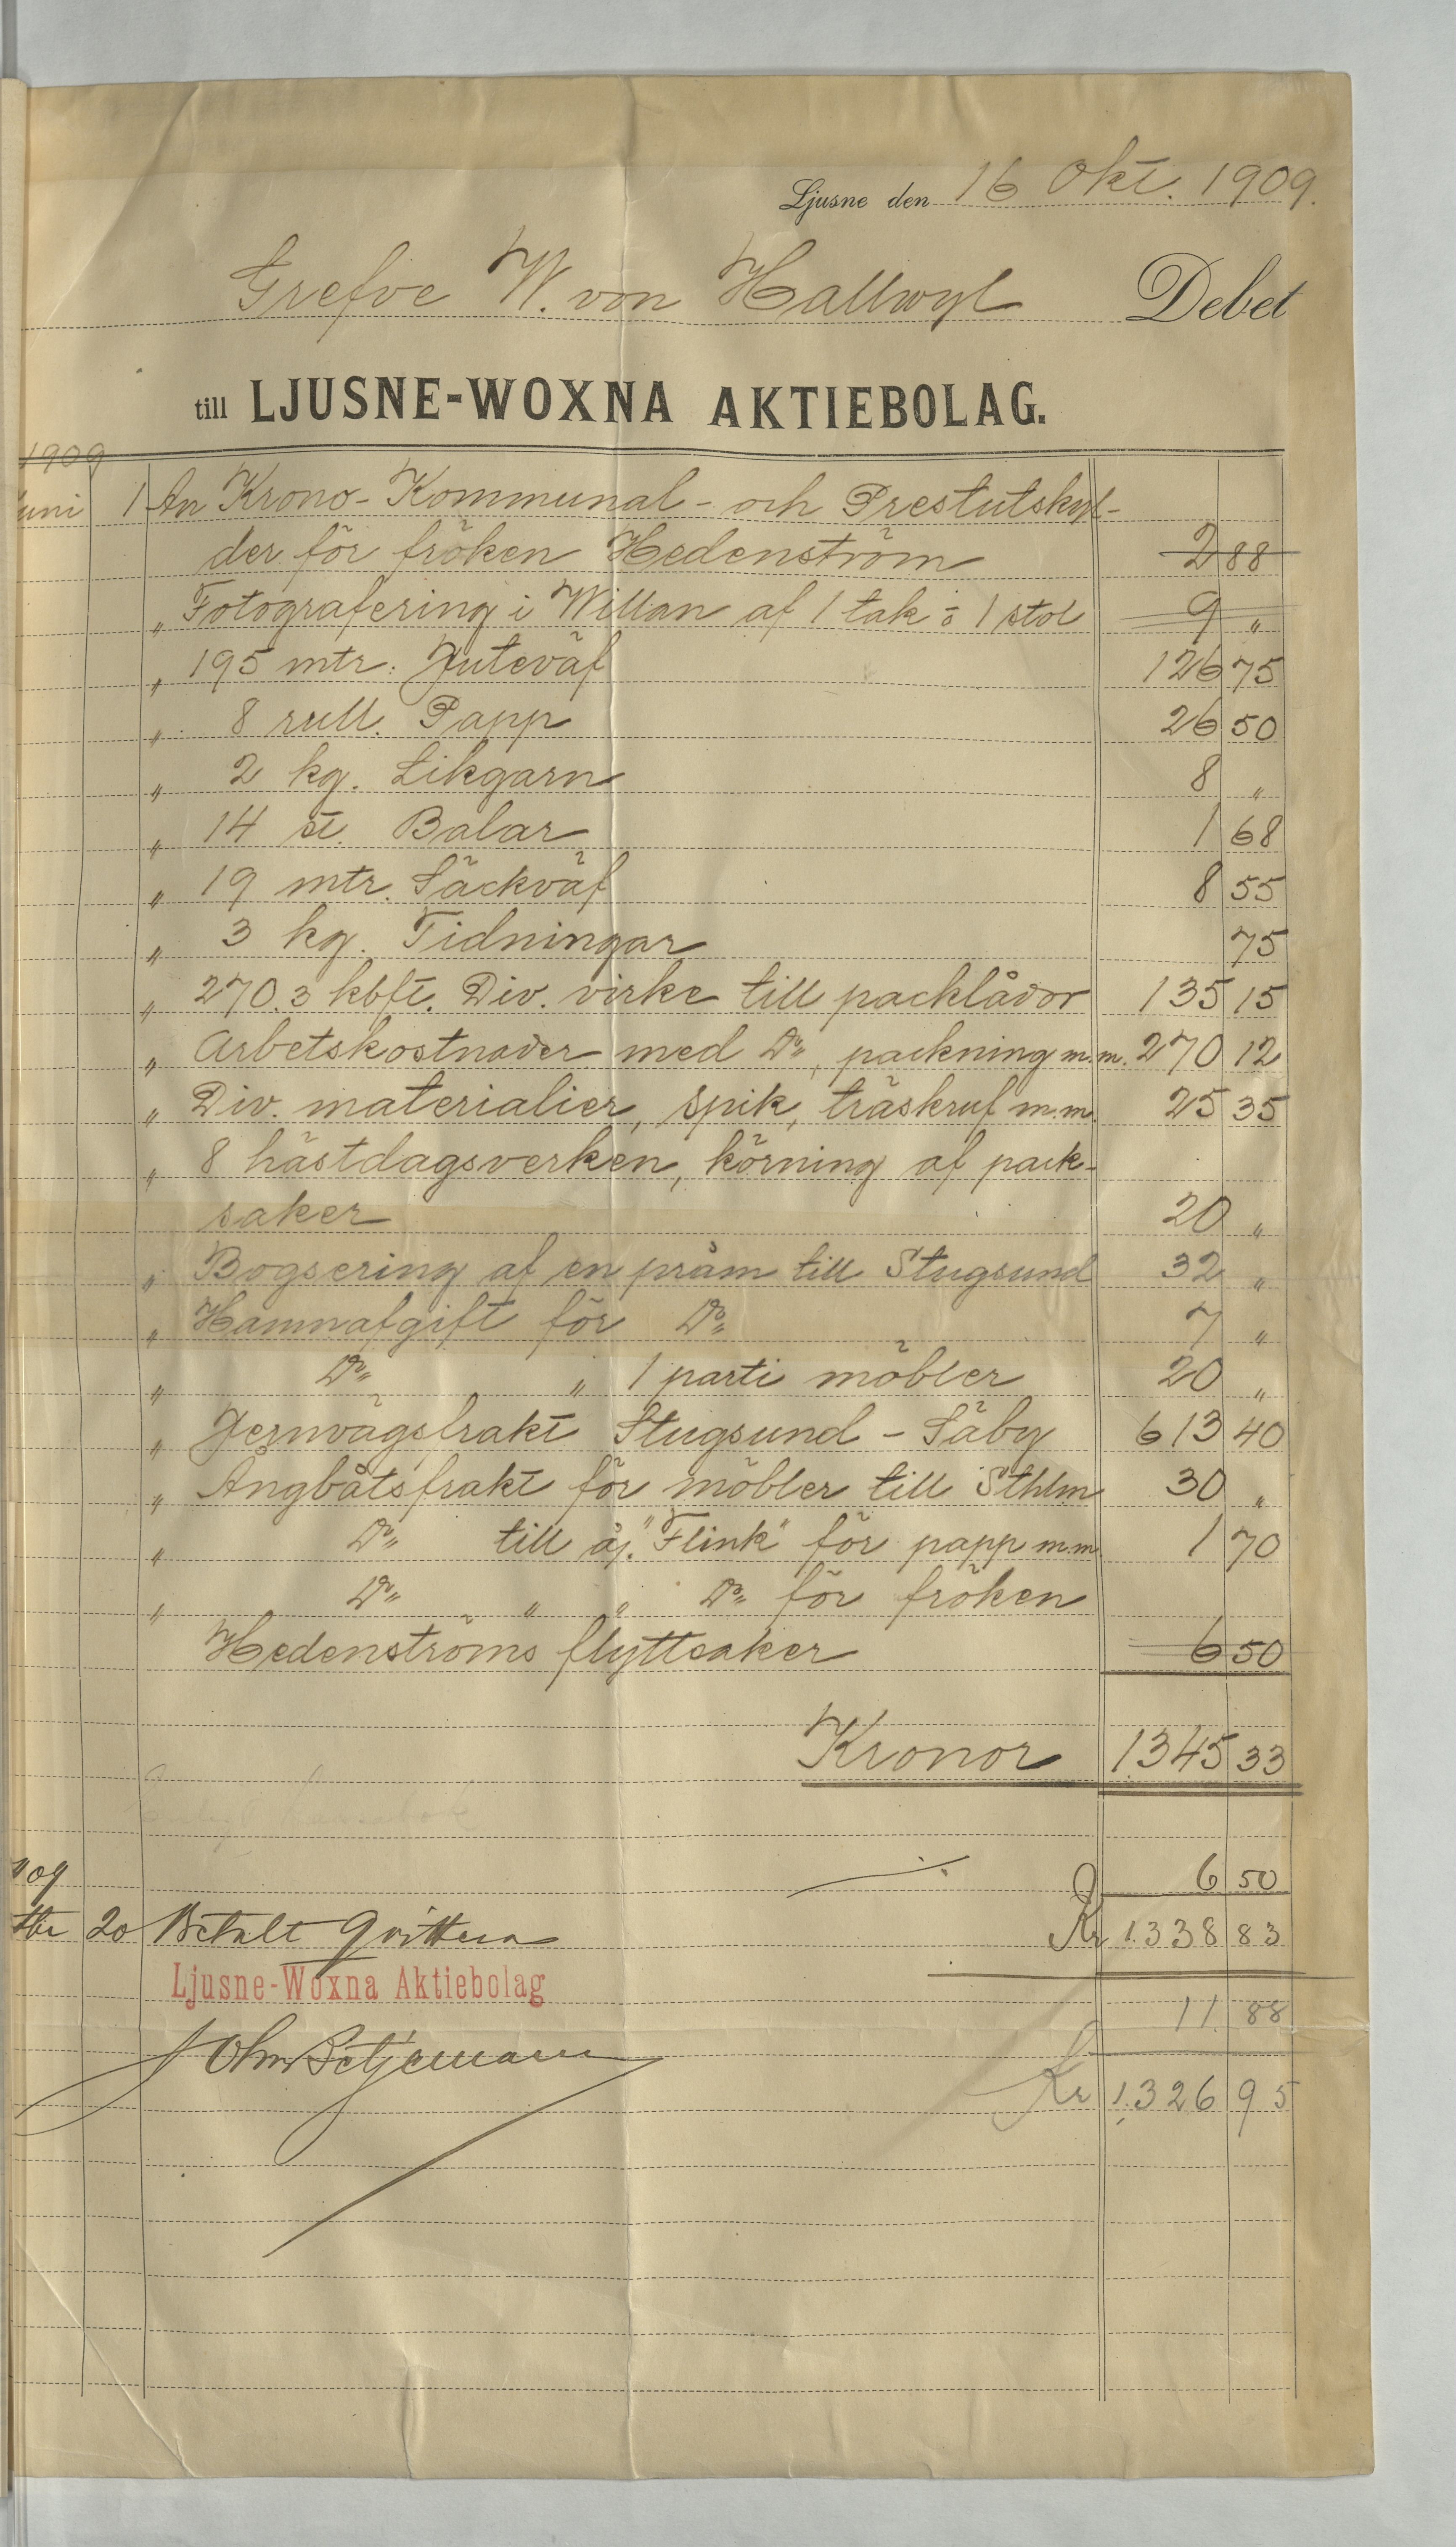 Ljusne den 16 Okt. 1909.
Grefve W. von Hallwyl Debet
till LJUSNE-WOXNA AKTIEBOLAG.
1909
uni 1 An Krono- Kommunal- och Prestutskyl-
der för fröken Hedenström 2 88
„ Fotografering i Willan af 1 tak o 1 stol 9 „
„ 195 mtr. Juteväf 126 75
„ 8 rull. Papp 26 50
„ 2 kg. Likgarn 8 „
„ 14 st. Balar 1 68
„ 19 mtr. Säckväf 8 55
„ 3 kg. Tidningar 75
„ 270.3 kbft. Div. virke till packlådor 135 15
„ Arbetskostnader med Do, packning m.m. 270 12
„ Div. materialier, spik, träskruf m.m. 25 35
„ 8 hästdagsverken, körning af pack-
saker 20 „
„ Bogsering af en pråm till Stugsund 32 „
„ Hamnafgift för Do 7 „
„ Do „ 1 parti möbler 20 „
„ Jernvägsfrakt Stugsund - Säby 613 40
„ Ångbåtsfrakt för möbler till Sthlm 30 „
„ Do till åf. "Flink" för papp m.m. 1 70
„ Do „ „ Do för fröken
Hedenströms flyttsaker 6 50
Kronor 1345 33
09 6 50
tbr 20 Betalt qvitteras Kr 1.338 83
Ljusne-Woxna Aktiebolag
11. 88
John Betjemann
Kr 1.326 95